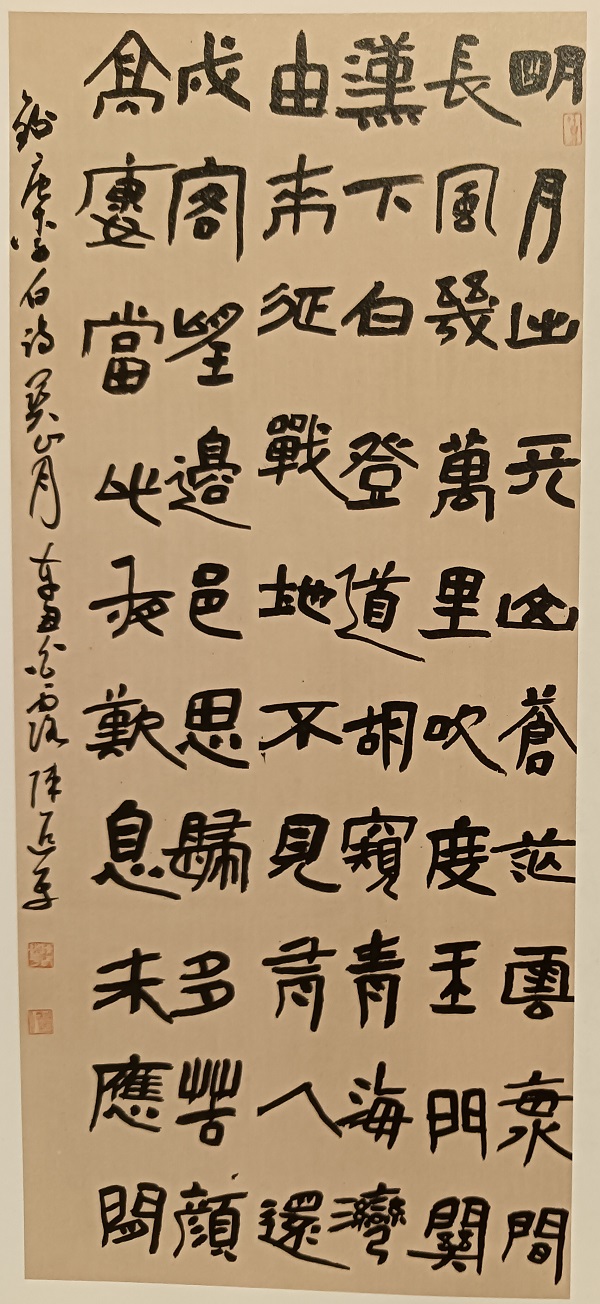 明月出天山蒼茫雲間
長風幾萬里吹度玉門關
漢下白登道胡窺青海灣
由來征戰地不見有人還
戍客望邊邑思歸多苦顏
高廔當此夜歎息未應閒
錄唐李白詩關山月 白露 陳